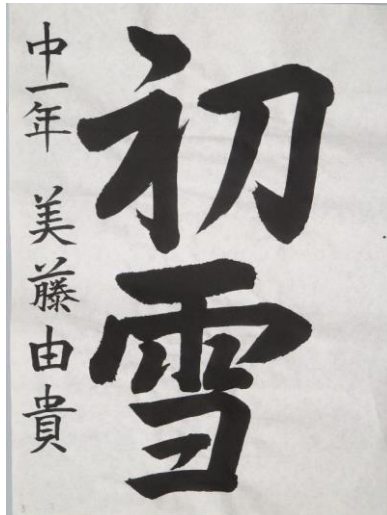 初雪
中一年 美藤由貴